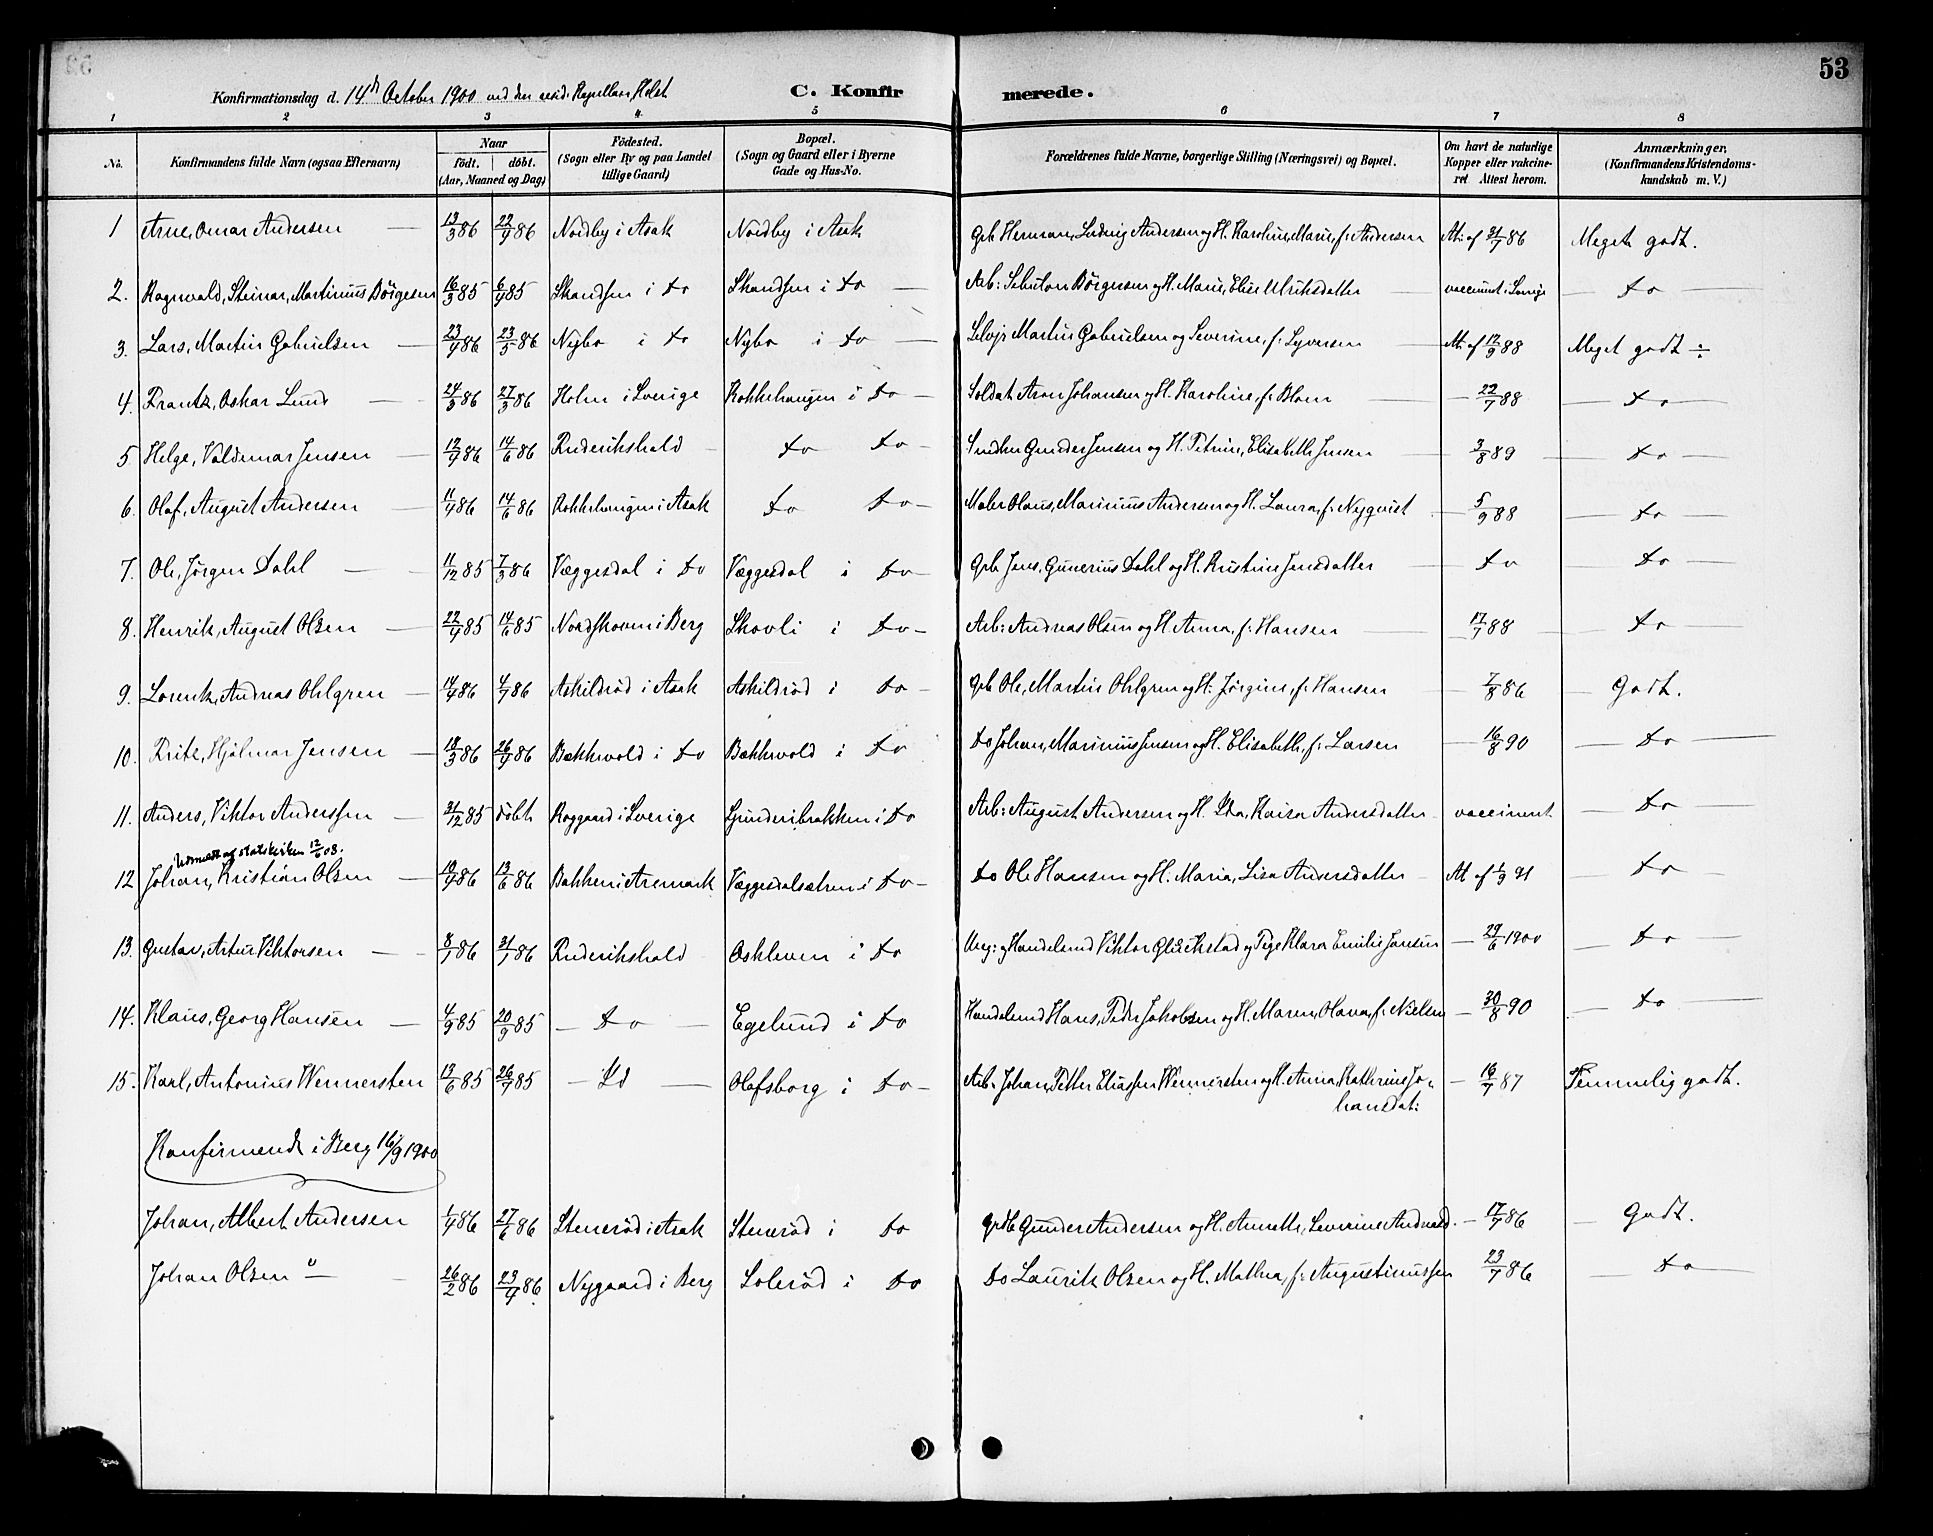 53
Konfirmationsdag d. 14de October 1900 ved den resid. Kapellan Holst C. Konfirmerede.
1 2 3 4 5 6 7 8
No. Konfirmandens fulde Navn (ogsaa Efternavn) Naar født. døbt. (Aar, Maaned og Dag) Födested. (Sogn eller By og paa Landet tillige Gaard) Bopæl. (Sogn og Gaard eller i Byerne Gade og Hus-No. Forældrenes fulde Navne, borgerlige Stilling (Næringsvei) og Bopæl. Om havt de naturlige Kopper eller vakcineret Attest herom. Anmærkninger, (Konfirmandens Kristendomskundskab m. V.)
1 Arne, Omar Andersen — 13/3 86 22/4 86 Nordby i Asak Nordby i Asak Grb Herman, Ludvig Andersen og H. Karoline, Marie, f. Andersen At: af 31/7 86 Meget godt.
2. Ragnvald, Steinar, Martinius Börgesen 16/3 85 6/4 85 Skandsen i do Skandsen i do — Arb: Børgersen og H. Marie, Elise Ulriksdatter — vaccinert i Sverige — do —
3. Lars, Martin Gabrielsen — 23/4 86 23/5 86 Nybo i do Nybo i do — Selvej Martin Gabrielsen og Severine, f. Syversen — At. af 12/9 88 Meget godt ÷
4. Frantz, Oskar Lund — 24/3 86 27/3 86 Holm i Sverige Rokkehaugen i do — Soldat Aron Johansen og H. Karoline, f. Blom — — 22/7 88 — do —
5 Helge, Valdemar Jensen — 12/4 86 14/6 86 Frederikshald — do do — Gunder Jensen og H. Petrine, Elisabeth Jensen — — 3/8 89 — — do —
6. Olaf, August Andersen — 11/4 86 14/6 86 Rokkehaugen i Asak do do — Maler Olaus, Marinius Andersen og H. Laura, f. Nyqvist — 5/9 88 — do —
7. Ole, Jørgen Dahl — — 11/12 85 7/3 86 Væggesdal i do Væggesdal i do — Grb Jens, Gunerius Dahl og H. Kristine Jensdatter — do — do —
8. Henrik, August Olsen — 22/4 85 14/6 85 Nordskoven i Berg Skovli i do — Arb: Andreas Olsen og H. Anna, f. Hansen — — 17/7 88 — — do —
9. Lorentz, Andreas Ohlgren — 14/4 86 4/7 86 Askildrød i Asak Askildrød i do — Grb Ole, Martin Ohlgren og H. Jörgine, f. Hansen — 7/8 86 — Godt.
10. Fritz, Hjalmar Jensen — 18/3 86 26/4 86 Bækkevold i do Bækkevold i do do Johan, Marinius Jensen og H. Elisabeth, f. Larsen — 16/8 90 — do —
11. Anders, Viktor Anderssen — 31/12 85 döbt Roggaard i Sverige i do Arb: August Andersen og H. Ida, Kaisa Andersdatter — vaccineret — do
Udmeldt af statskirken 12/6 08.
12 Johan, Kristian Olsen — 10/4 86 13/6 86 Bakken i Aremark Væggesdalsætren i do — do Ole Hansen og H. Maria, Lisa Andersdatter — At. af 1/9 91 — do —
13. Gustav, Artur Viktorsen — 8/1 86 31/1 86 Frederikshald Oskleven i do Ung: og Handelsmd Viktor Glückstad og Pige Klara Emilie Jansen — 29/6 1900 — do —
14. Klaus, Georg Hansen — 4/9 85 20/9 85 — do — Egelund i do Handelsmd Hans, Peder Jakobsen og H. Maren, Olava, f. Nielsen — 30/8 90 — do —
15. Karl, Antonius Wennersten 13/6 85 26/7 85 — Id — Olafsborg i do — Arb: Johan, Petter Eliassen Wennersten og H. Anna, Katherine Johansdat: — 16/7 87 Temmelig godt.
Konfirmerede i Berg 16/9 1900
Johan, Albert Andersen 1/4 86 27/6 86 Stenerød i Asak Stenerød i do Grdb Gunder Andersen og H. Annette, Severine Andreasd. — 17/7 86 — Godt.
Johan Olsen — 26/2 86 23/4 86 Nygaard i Berg Solerød i do do Laurits Olsen og H. Mathea, f. Augustinussen 23/7 86 — do —